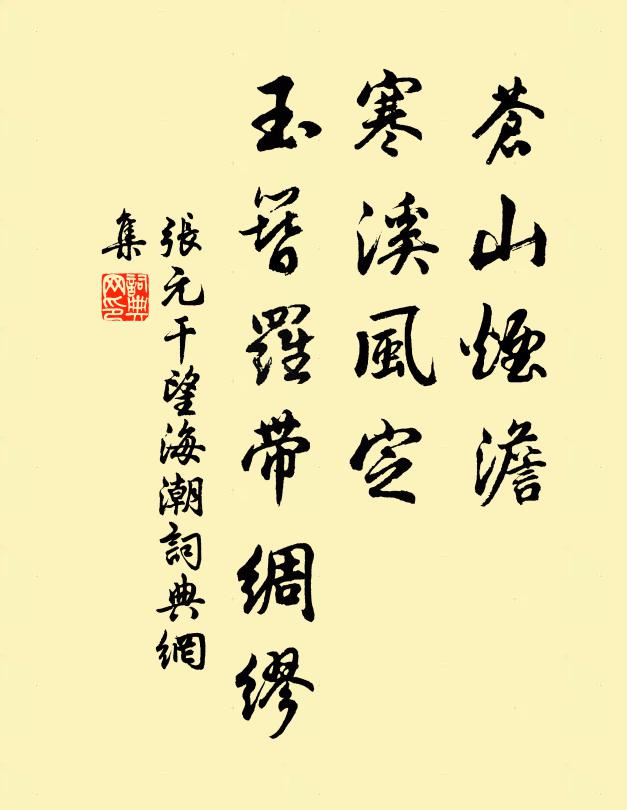 蒼山煙澹
寒溪風定
玉簪羅帶綢繆
張元干望海潮詞典網
集
詞典網印